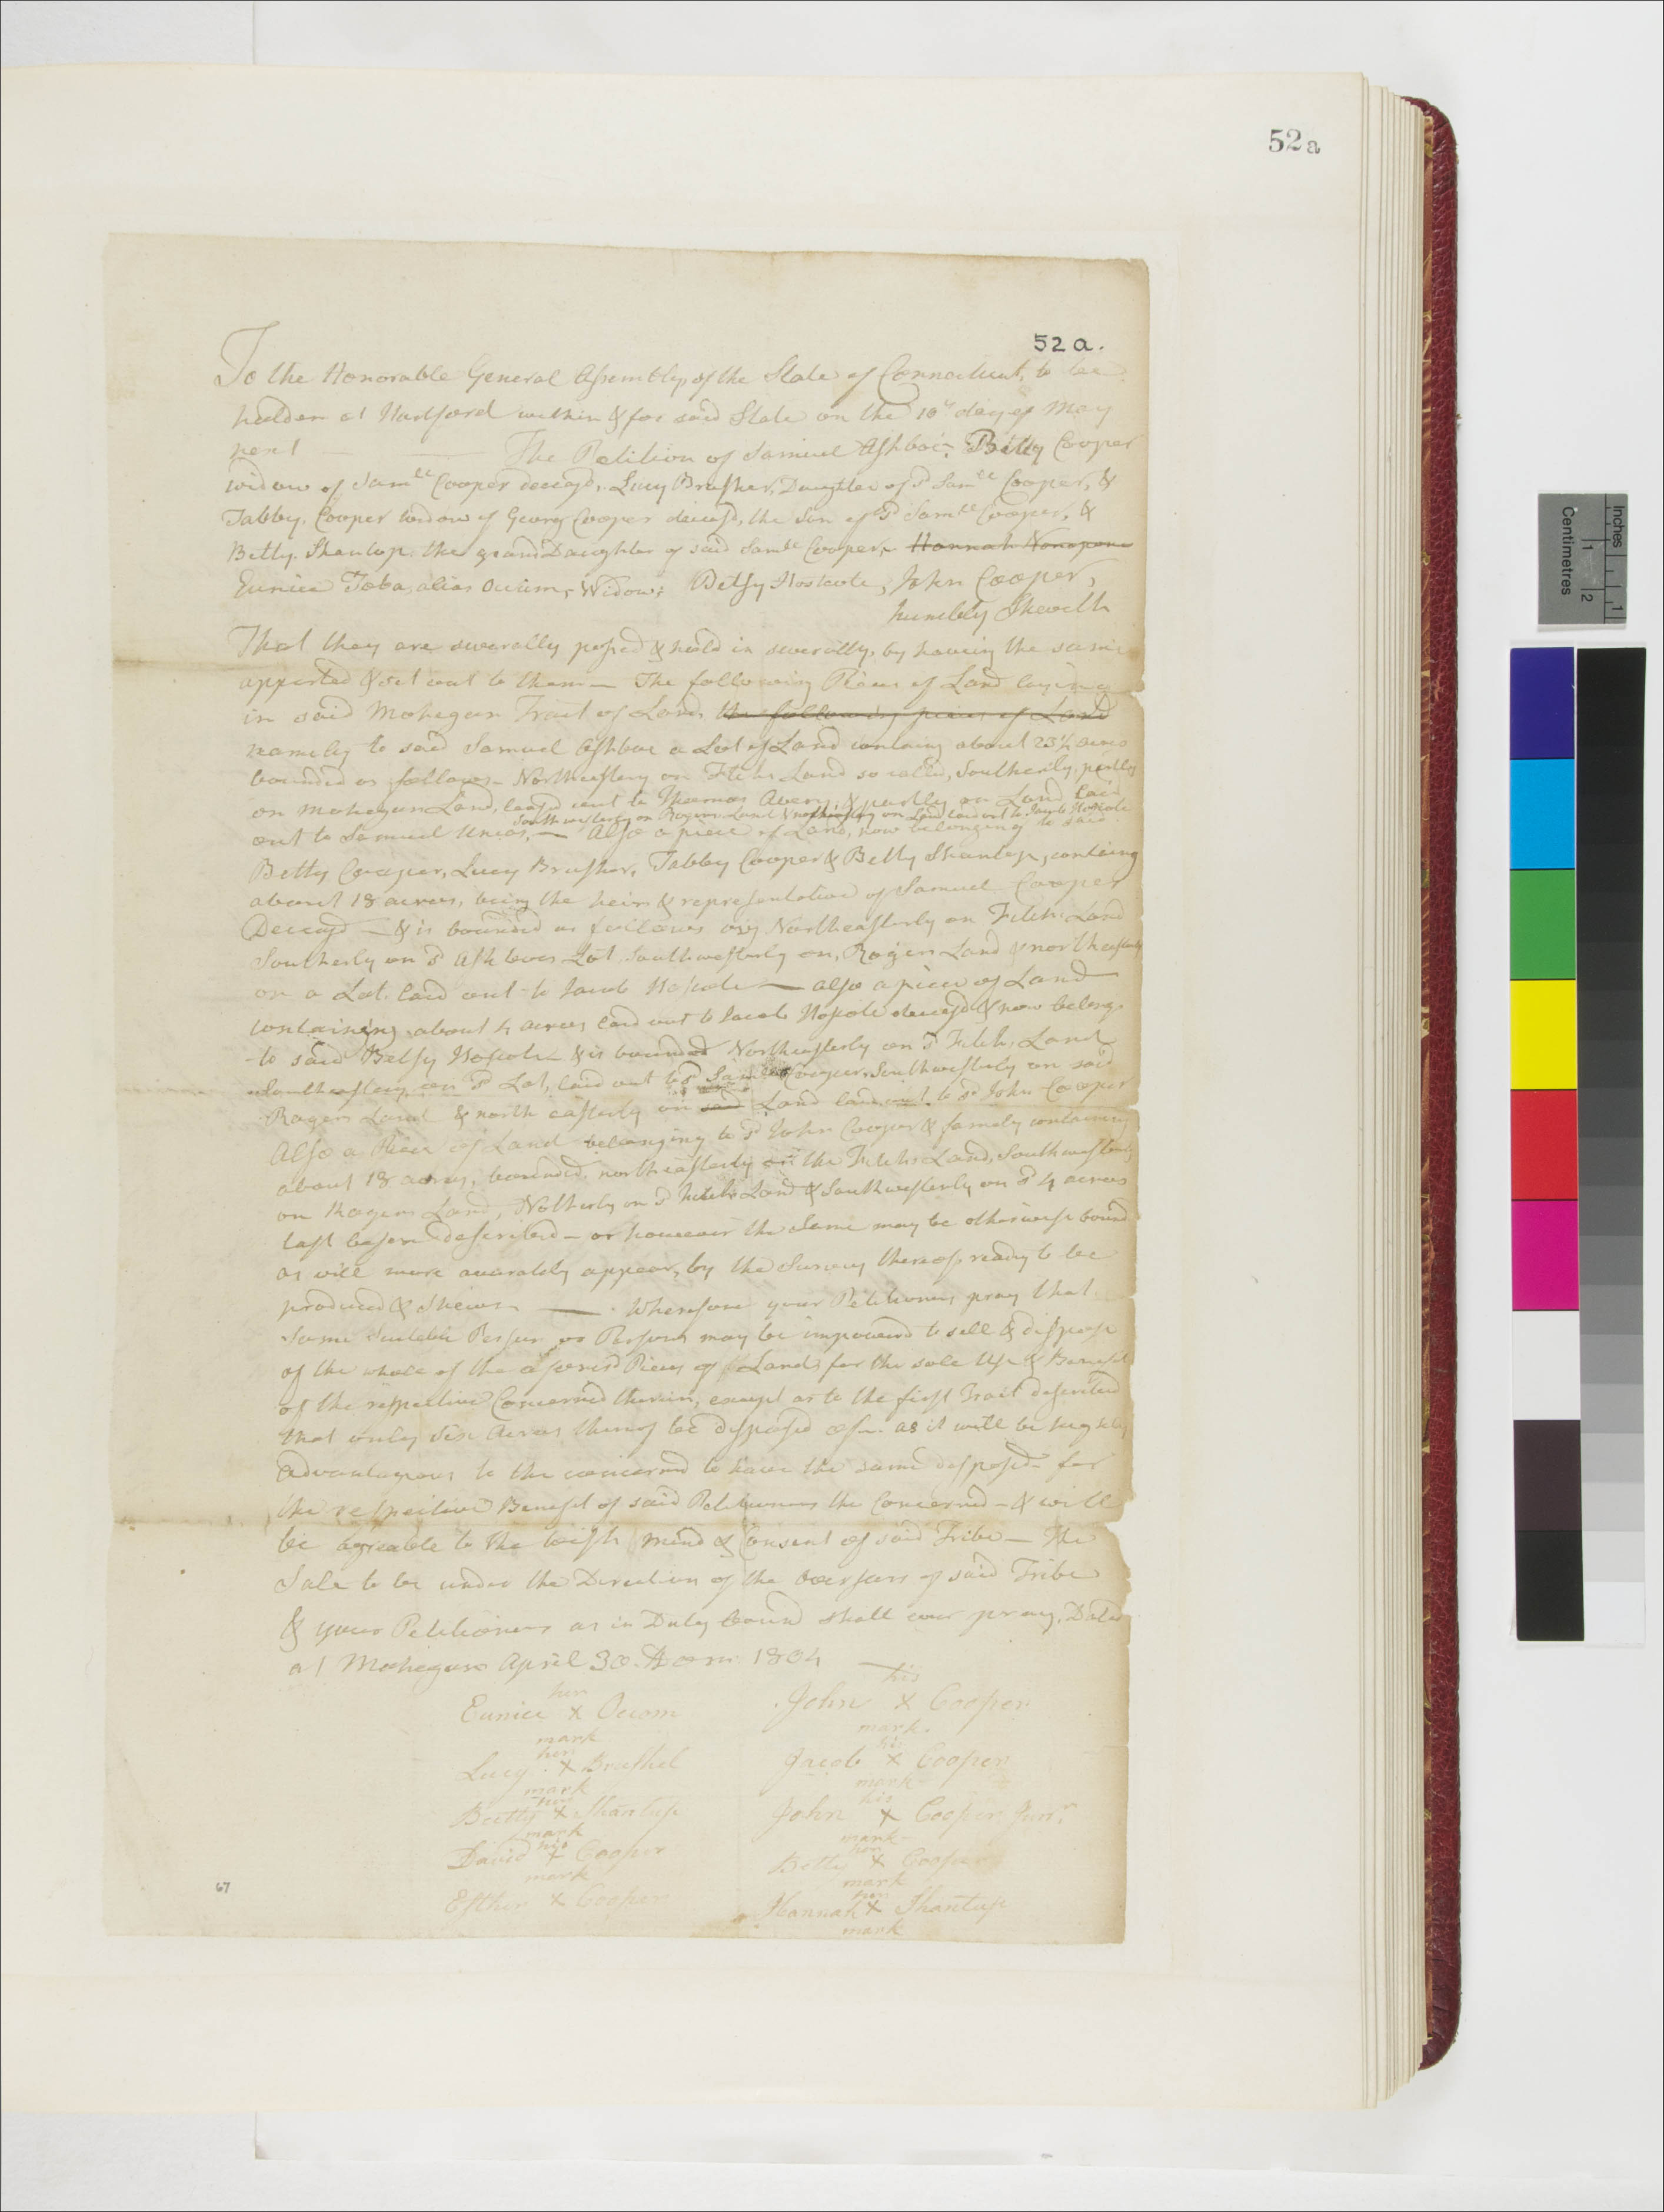 52a
52 a.
To the Honorable General Assembly, of the State of Connecticut, to be
holden at Hartford within & for said State on the 10th day of May
next The Petition of Samuel Ashboe, Betty Cooper
widow of Samll Cooper deceasd, Lucy Brusher, Daughter of sd Samll Cooper, &
Tabby Cooper widow of Georg Cooper deceasd, the Son of sd Samll Cooper, &
Betty Shantop the grand Daughter of said Samll Cooper, Hannah
Eunice Toba alias Occum, Widow; Betsy Hoscote, John Cooper,
humbly Sheweth
That they are severally posesd & hold in severalty, by having the same
apperted & set out to them — The following Pieces of Land laying
in said Mohegan Tract of Land, the following pieces of Land
namely to said Samuel Ashboe a Lot of Land containg about 23½ acres
bounded as follows — Northeasterly on Fitchs Land so called, Southerly, partly
on Mohegan Land, leasd out to Thomas Avery, & partly on Land laid
Southwesterly on Rogers Land & northeasterly on Land laid out to Jacob Hoscote
out to Samuel Uncas, — Also a piece of Land, now belonging to said
Betty Cooper, Lucy Brusher, Tabby Cooper & Betty Shantop, containg
about 18 acres, being the heirs & representatives of Samuel Cooper
Deceasd — & is bounded as follows viz Northeasterly on Fitchs Land
Southerly on sd Ashboes Lot, Southwesterly on, Rogers Land & northeasterly
on a Lot laid out to Jacob Hoscote — also a piece of Land
containing about 4 acres laid out to Jacob Hoscote deceasd & now belongs
to said Betsy Hoscote & is bounded Northeasterly on sd Fitchs Land
Southeasterly on sd Lot, laid out to sd Samll Cooper, Southwesterly on said
Rogers Land & north easterly on said Land laid out to sd John Cooper
Also a Piece of Land belonging to sd John Cooper & family containing
about 18 acres, bounded northeasterly on the Fitchs Land, Southwesterly
on Rogers Land, Notherly on sd Fitchs Land & Southwesterly on sd 4 acres
last before described — or however the same may be otherwise bound
as will more acurately appear, by the Survey thereof ready to be
produced & Shewn — Wherefore your Petitioners pray that
Some Suitable Person or Persons may be impowered to sell & dispose
of the whole of the aforesd Pieces of Land, for the sole Use & Benefit
of the respective Concerned therein, except as to the first Tract described
that only Six Acres thereof be disposed of — as it will be highly
advantageous to the concerned to have the same disposed for
the respective Benefit of said Petitioners the Concerned — & will
be agreable to the wish mind & Consent of said Tribe — The
Sale to be under the Direction of the Overseers of said Tribe
& your Petitioners as in Duty bound shall ever pray, Dated
at Mohegan April 30. A Dom: 1804
her
Eunice X Occom
mark
her
Lucy X Brushel
mark
her
Betty X Shantup
mark
his
David X Cooper
mark
Esther X Cooper
his
John X Cooper
mark.
his
Jacob X Cooper
mark
his
John X Cooper Junr.
mark
her
Betty X Cooper
mark
her
Hannah X Shantup
mark
67
Inches
1
Centimetres
1
2